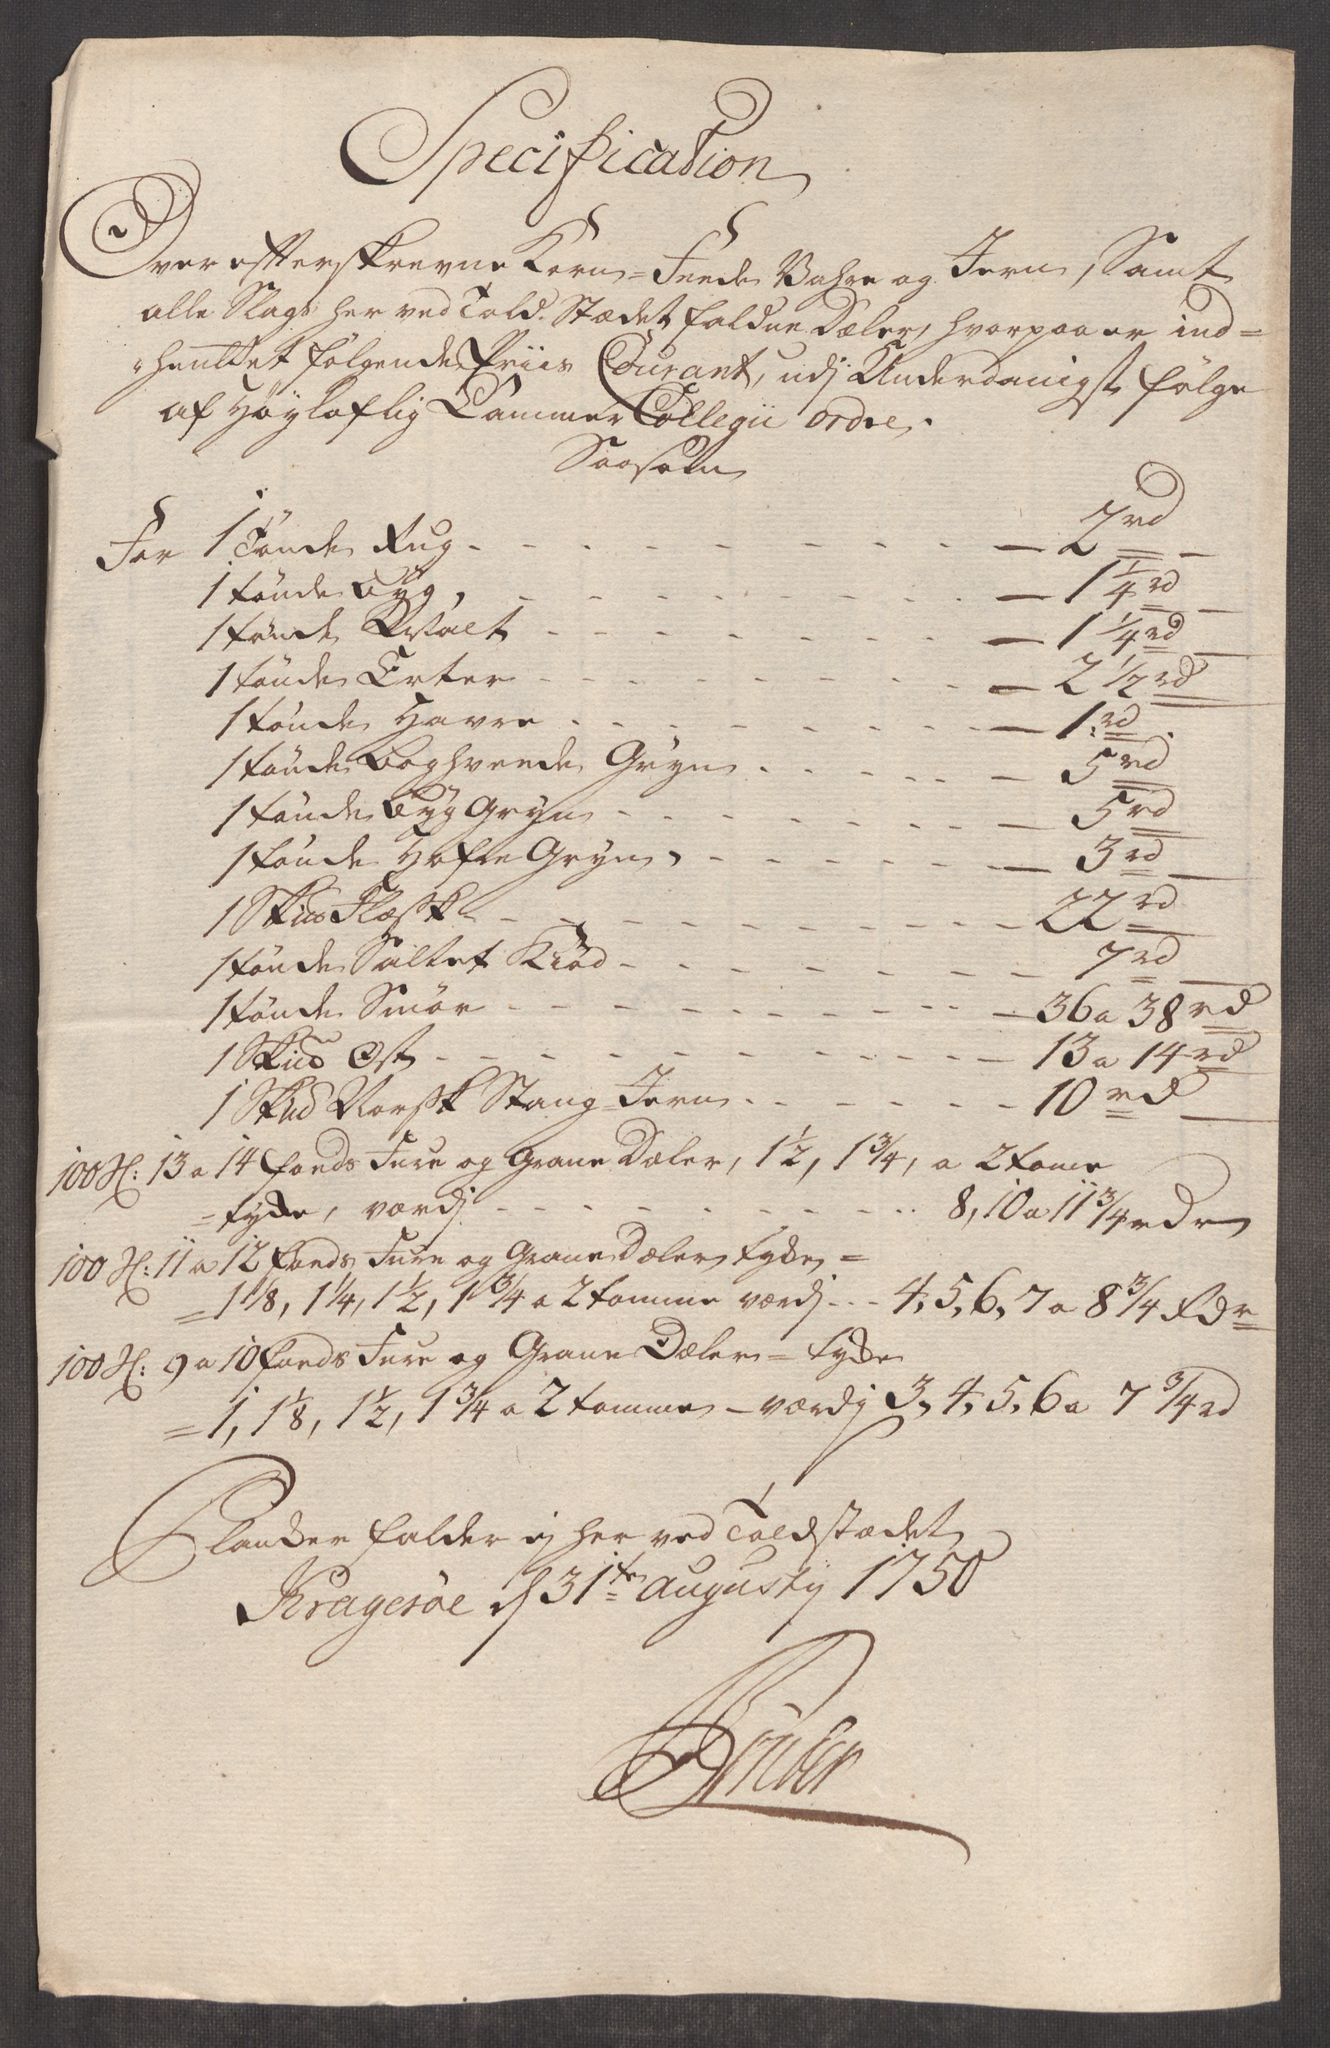 Specification
Over efterskrevne Korn- Feede Vahre og Jern, Samt
alle Slags her ved Told-Stædet faldne Dæler, hvorpaa er ind=
hentdet følgende Priis Courant, udj Underdanigst følge
af Høyloflig Cammer Collegii ordre.
Saasom
For 1 Tønde Rug - - - 2 rd
1 tønde Byg, - - - 1 1/4 rd
1 tønde Malt - - - 1 1/4 rd
1 tønde Erter - - - 2 1/2 rd
1 tønde Havre - - - 1 rd
1 tønde Boghvede Gryn - - - 5 rd
1 tønde Byg Gryn - - - 5 rd
1 tønde Hafre Gryn, - - - 3 rd
1 Skud Flæsk - - - 22 rd
1 tønde Saltet Kiød - - - 7 rd
1 tønde Smør - - - 36 a 38 rd
1 Skud Ost - - - 13 a 14 rd
1 Skud Norsk Stang-Jern - - - 10 rd
100 St: 13 a 14 foeds Fure og Grane Dæler, 1 1/2, 1 3/4, a 2 tome
= tyke, værdj - - - 8, 10 a 11 3/4 rdr
100 St: 11 a 12 foeds Fure og Grane Dæler tyke =
= 1 1/8, 1 1/4, 1 1/2, 1 3/4 a 2 tomme værdj - - - 4, 5, 6, 7 a 8 3/4 rdr
100 St: 9 a 10 foeds Fure og Grane Dæler = tyke
= 1, 1 1/8, 1 1/2, 1 3/4 a 2 tomme - værdj 3, 4, 5, 6 a 7 3/4 rd
Planker falder ej her ved Toldstædet
Kragerøe d 31te Augustij 1750